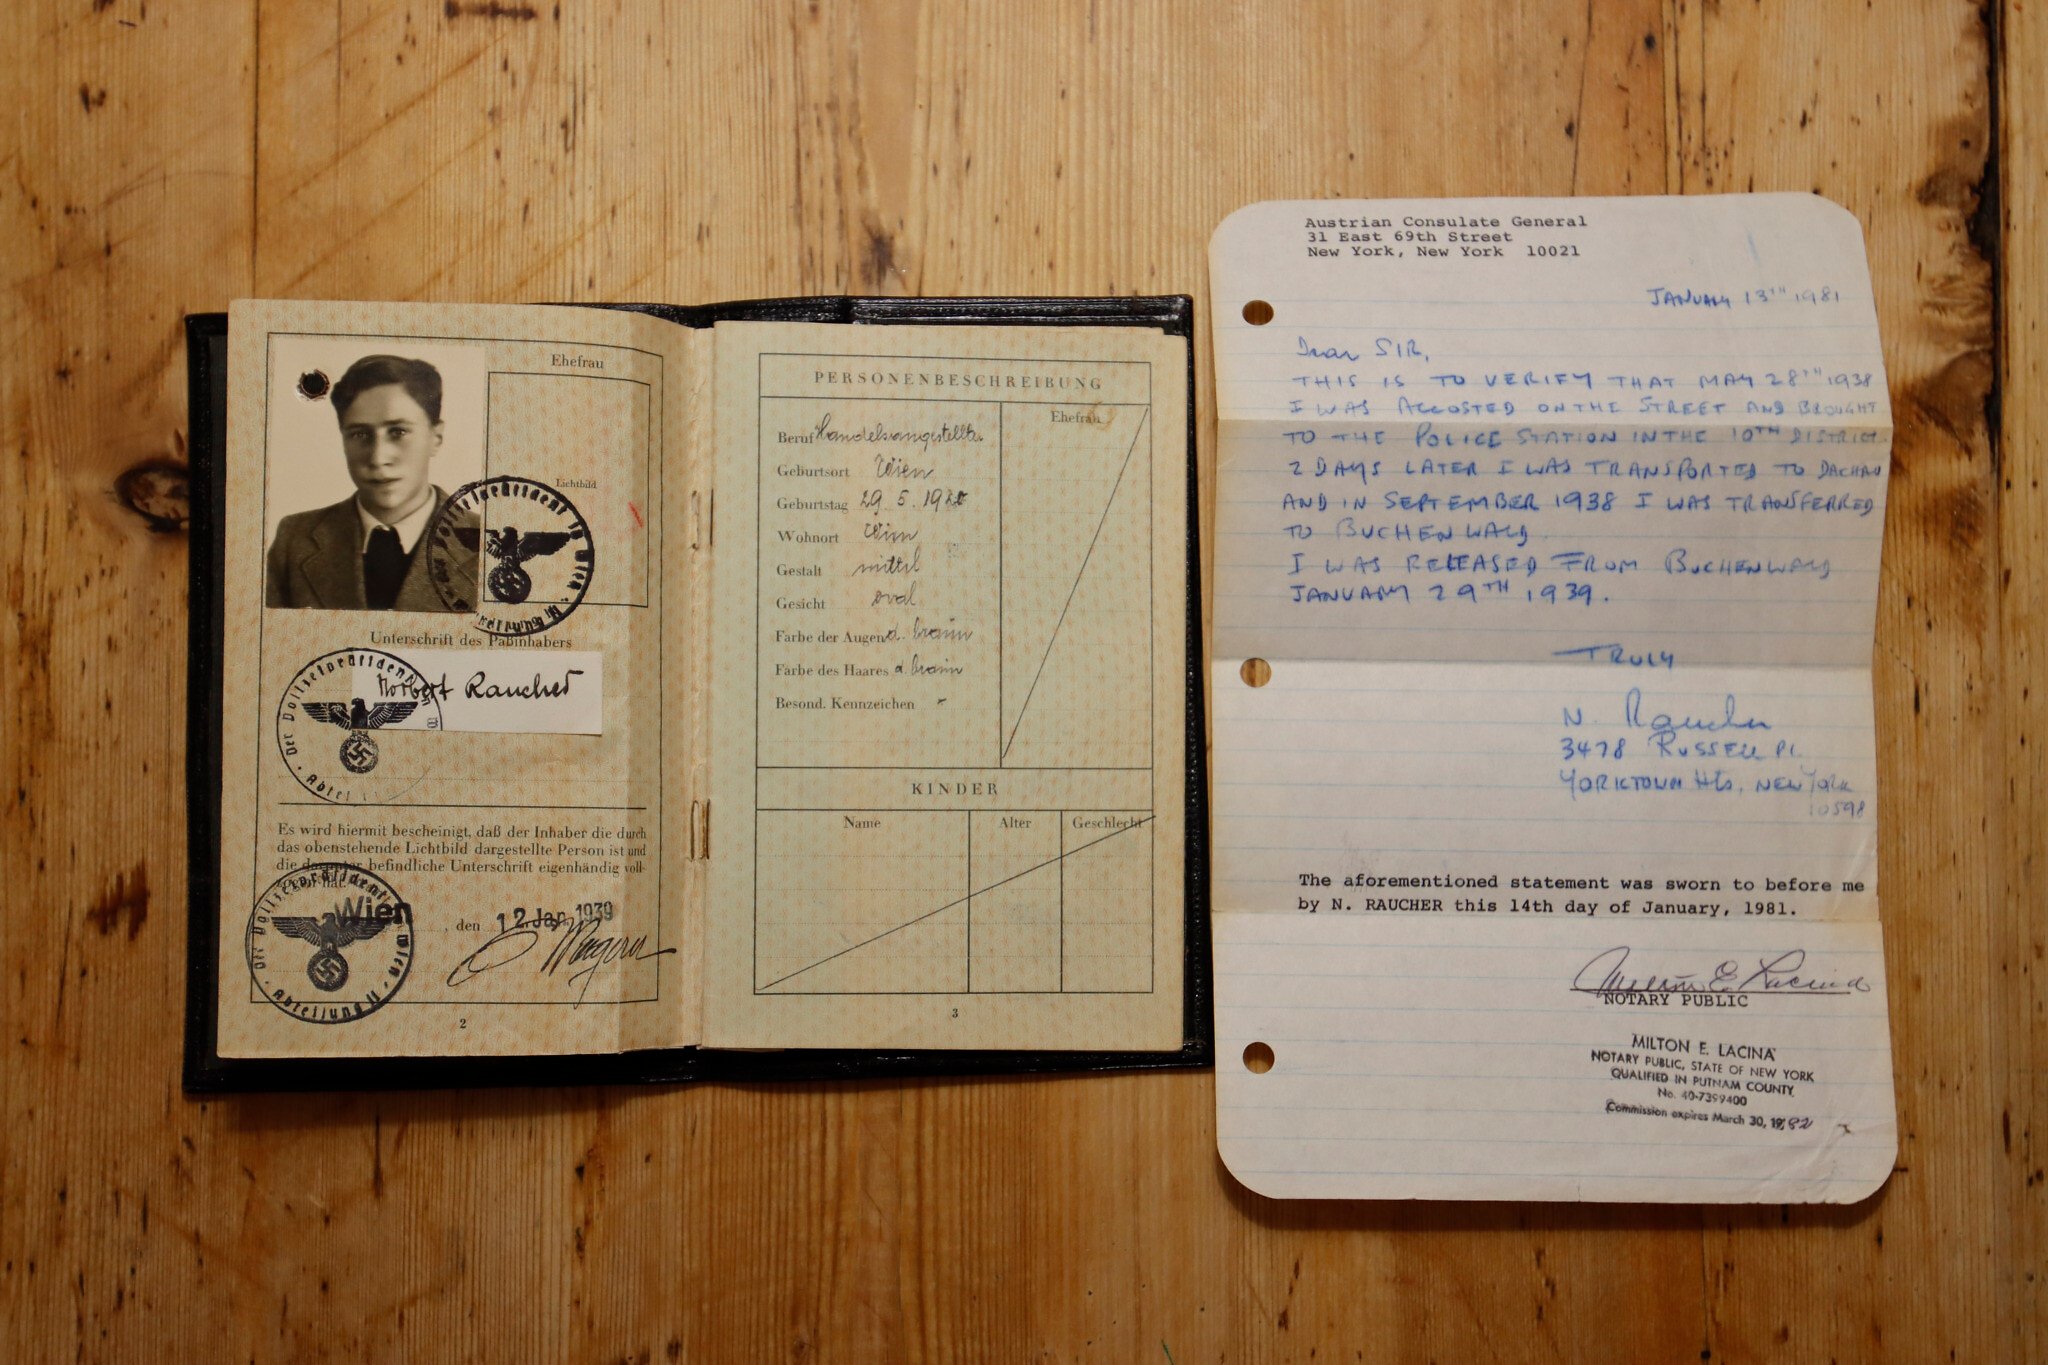 Ehefrau
Lichtbild
Der Polizeipräsident in Wien
Unterschrift des Paßinhabers
Norbert Raucher
Der Polizeipräsident
Abtei
Es wird hiermit bescheinigt, daß der Inhaber die durch
das obenstehende Lichtbild dargestellte Person ist und
die darunter befindliche Unterschrift eigenhändig voll-
hat.
Der Polizeipräsident in Wien
Abteilung II
Wien, den 12. Jan. 1939
2
PERSONENBESCHREIBUNG
Ehefrau
Beruf Handelsangestellter
Geburtsort Wien
Geburtstag 29. 5. 1920
Wohnort Wien
Gestalt mittel
Gesicht oval
Farbe der Augen d. braun
Farbe des Haares d. braun
Besond. Kennzeichen -
KINDER
Name Alter Geschlecht
3
Austrian Consulate General
31 East 69th Street
New York, New York 10021
JANUARY 13TH 1981
Dear SIR,
THIS IS TO VERIFY THAT MAY 28TH 1938
I WAS ACCOSTED ON THE STREET AND BROUGHT
TO THE POLICE STATION IN THE 10TH DISTRICT.
2 DAYS LATER I WAS TRANSPORTED TO DACHAU
AND IN SEPTEMBER 1938 I WAS TRANSFERRED
TO BUCHENWALD.
I WAS RELEASED FROM BUCHENWALD
JANUARY 29TH 1939.
TRULY
N. Raucher
3478 RUSSELL PL.
YORKTOWN Hts. NEW YORK
10598
The aforementioned statement was sworn to before me
by N. RAUCHER this 14th day of January, 1981.
Milton E. Lacina
NOTARY PUBLIC
MILTON E. LACINA
NOTARY PUBLIC, STATE OF NEW YORK
QUALIFIED IN PUTNAM COUNTY
No. 40-7399400
Commission expires March 30, 1982